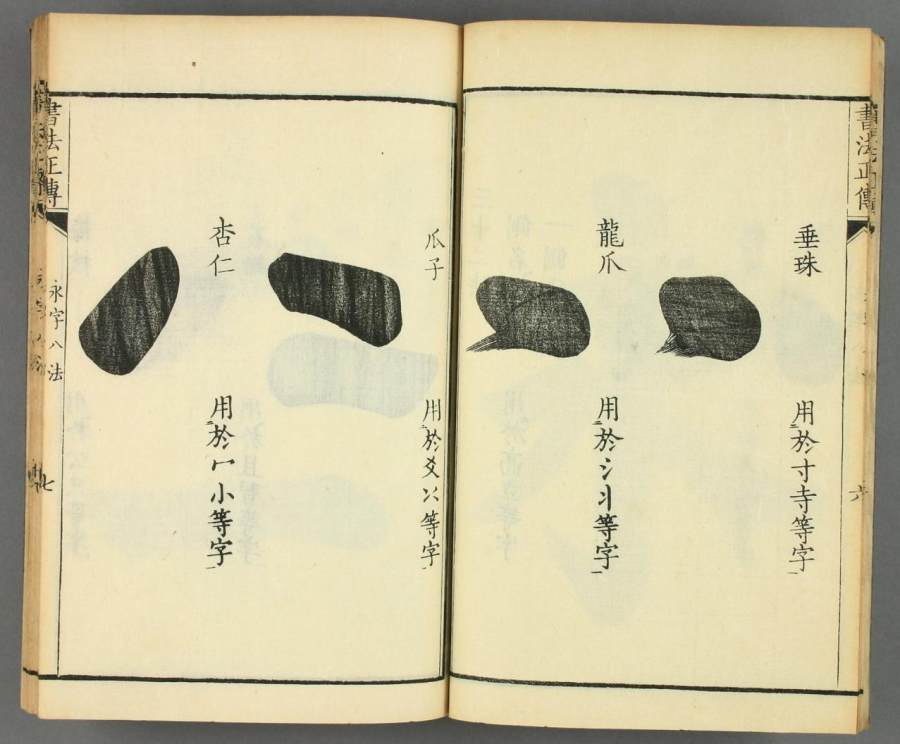 書法正傳
六
垂珠
用於寸寺等字
龍爪
用於冫丬等字
瓜子
用於爻冫等字
杏仁
用於冖小等字
書法正傳
永字八法
七